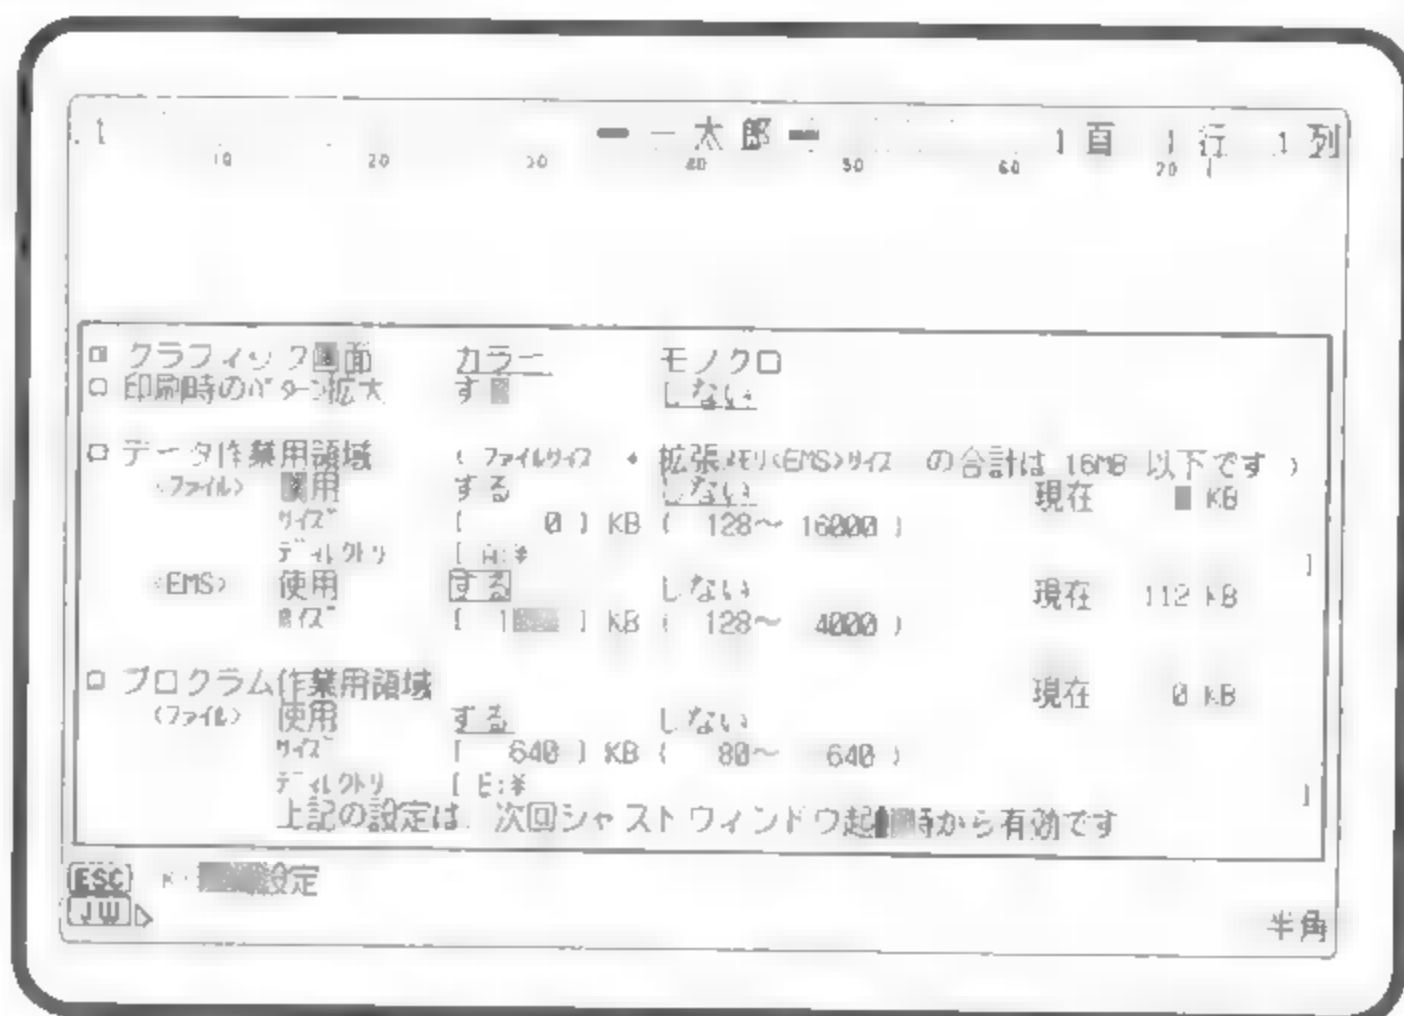 1 一太郎 1頁 1行 1列
10 20 30 40 50 60 70
グラフィック画面 カラー モノクロ
印刷時のパターン拡大 す しない
データ作業用領域 ( ファイルサイズ + 拡張メモリ<EMS>サイズ の合計は 16MB 以下です )
<ファイル> 使用 する しない 現在 KB
サイズ [ 0 ] KB ( 128～ 16000 )
ディレクトリ [ A:¥ ]
<EMS> 使用 する しない 現在 112 KB
サイズ [ 1 ] KB ( 128～ 4000 )
プログラム作業用領域 現在 0 KB
<ファイル> 使用 する しない
サイズ [ 640 ] KB ( 80～ 640 )
ディレクトリ [ E:¥ ]
上記の設定は 次回ジャストウィンドウ起動時から有効です
ESC K 設定
JW 半角